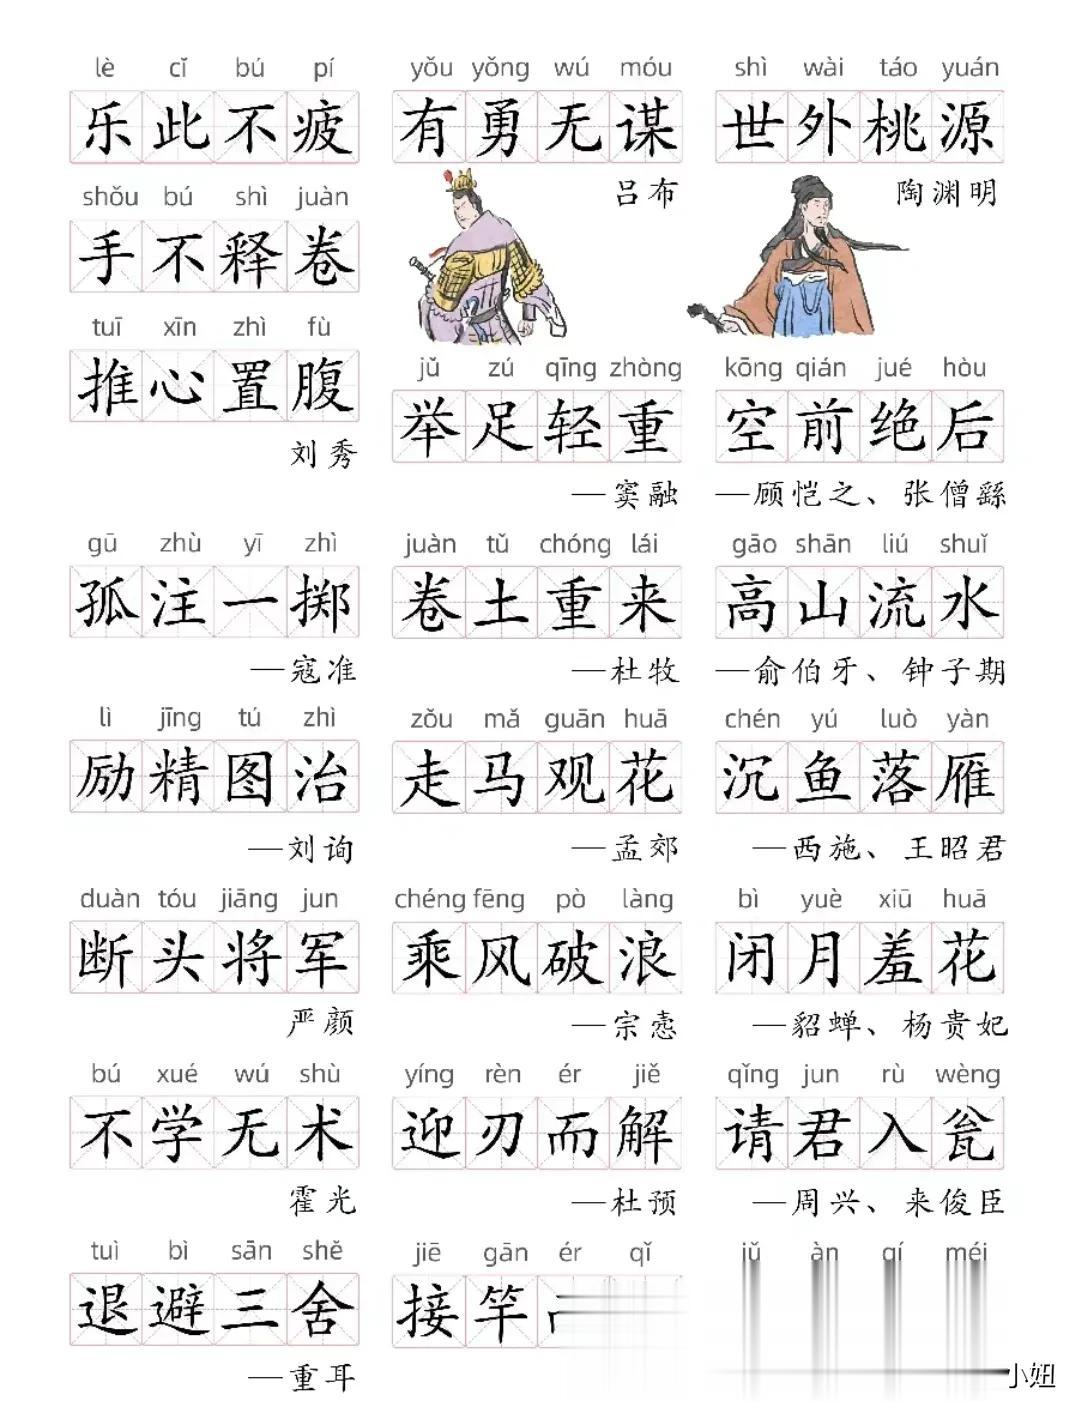 lè cǐ bú pí
乐此不疲
shǒu bú shì juàn
手不释卷
tuī xīn zhì fù
推心置腹
刘秀
gū zhù yī zhì
孤注一掷
—寇准
lì jīng tú zhì
励精图治
—刘询
duàn tóu jiāng jun
断头将军
严颜
bú xué wú shù
不学无术
霍光
tuì bì sān shě
退避三舍
—重耳
yǒu yǒng wú móu
有勇无谋
吕布
jǔ zú qīng zhòng
举足轻重
—窦融
juàn tǔ chóng lái
卷土重来
—杜牧
zǒu mǎ guān huā
走马观花
—孟郊
chéng fēng pò làng
乘风破浪
—宗悫
yíng rèn ér jiě
迎刃而解
—杜预
jiē gān ér qǐ
接竿
shì wài táo yuán
世外桃源
陶渊明
kōng qián jué hòu
空前绝后
—顾恺之、张僧繇
gāo shān liú shuǐ
高山流水
—俞伯牙、钟子期
chén yú luò yàn
沉鱼落雁
—西施、王昭君
bì yuè xiū huā
闭月羞花
—貂蝉、杨贵妃
qǐng jun rù wèng
请君入瓮
—周兴、来俊臣
jǔ àn qí méi
小妞